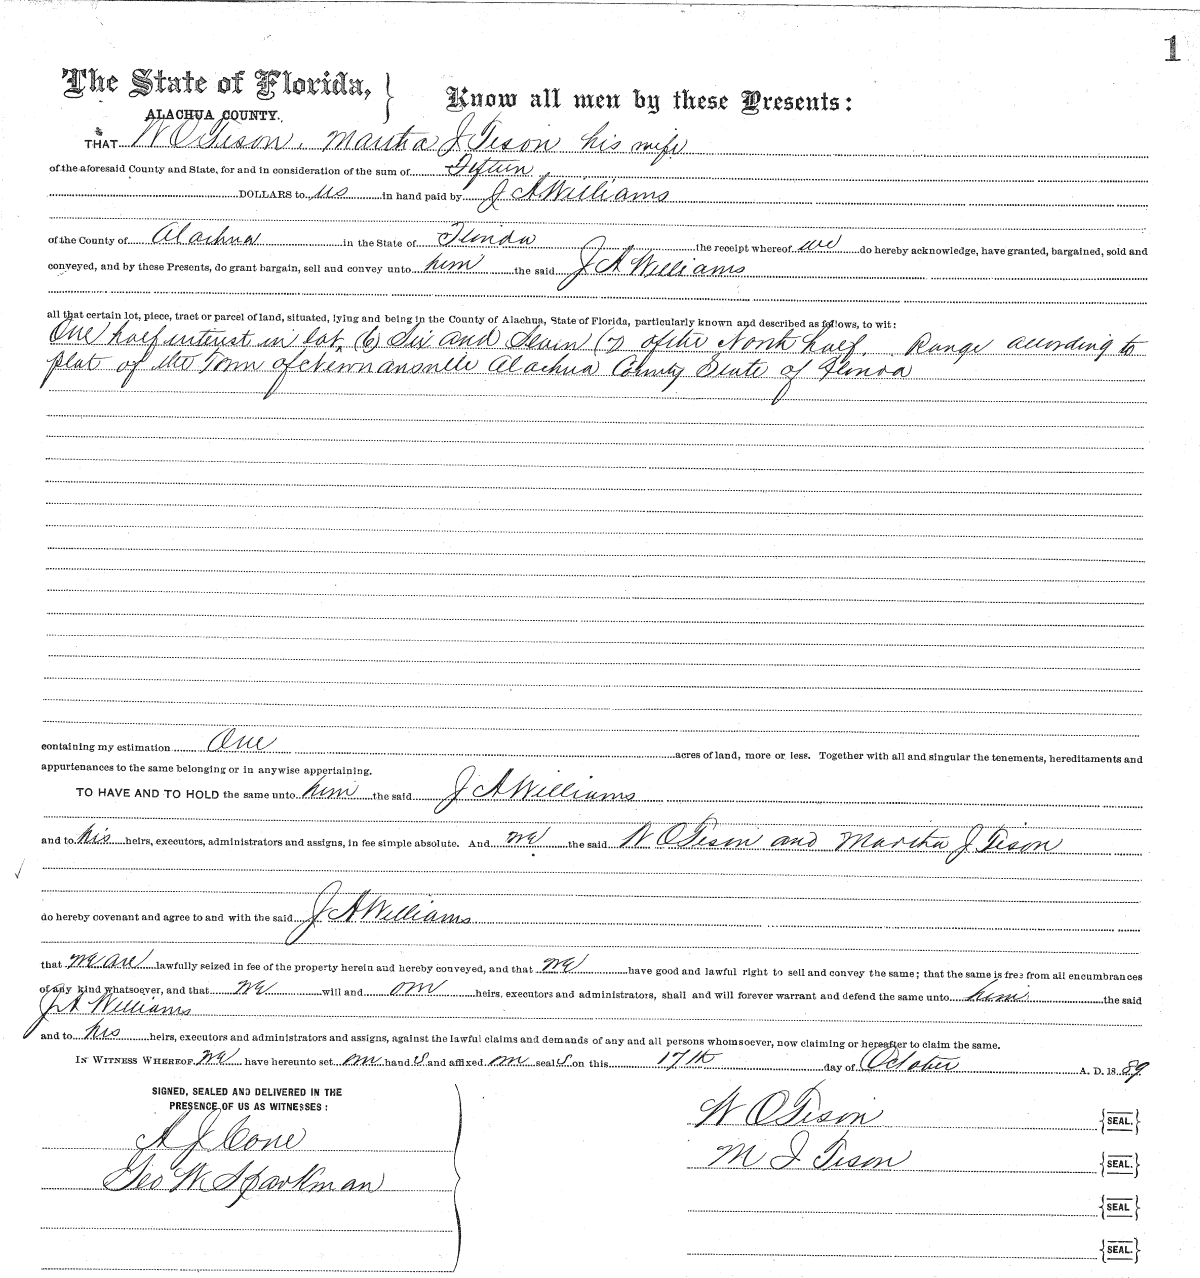 1
The State of Florida, } Know all men by these Presents:
ALACHUA COUNTY.
THAT W O Tison, Martha J Tison his wife
of the aforesaid County and State, for and in consideration of the sum of Fifteen
DOLLARS to us in hand paid by J A Williams
of the County of Alachua in the State of Florida the receipt whereof we do hereby acknowledge, have granted, bargained, sold and
conveyed, and by these Presents, do grant bargain, sell and convey unto him the said J A Williams
all that certain lot, piece, tract or parcel of land, situated, lying and being in the County of Alachua, State of Florida, particularly known and described as follows, to wit:
One half interest in lot (6) Six and Seven (7) of the North half. Range according to
plat of the Town of Newnansville Alachua County State of Florida
containing my estimation One acres of land, more or less. Together with all and singular the tenements, hereditaments and
appurtenances to the same belonging or in anywise appertaining.
TO HAVE AND TO HOLD the same unto him the said J A Williams
and to his heirs, executors, administrators and assigns, in fee simple absolute. And we the said W O Tison and Martha J Tison
do hereby covenant and agree to and with the said J A Williams
that we are lawfully seized in fee of the property herein and hereby conveyed, and that we have good and lawful right to sell and convey the same; that the same is free from all encumbrances
of any kind whatsoever, and that we will and our heirs, executors and administrators, shall and will forever warrant and defend the same unto him the said
J A Williams
and to his heirs, executors and administrators and assigns, against the lawful claims and demands of any and all persons whomsoever, now claiming or hereafter to claim the same.
IN WITNESS WHEREOF, we have hereunto set our hand s and affixed our seal s on this 17th day of October A. D. 18 89
SIGNED, SEALED AND DELIVERED IN THE
PRESENCE OF US AS WITNESSES:
A J Cone
Geo W Sparkman
W O Tison {SEAL.}
M J Tison {SEAL.}
{SEAL}
{SEAL.}